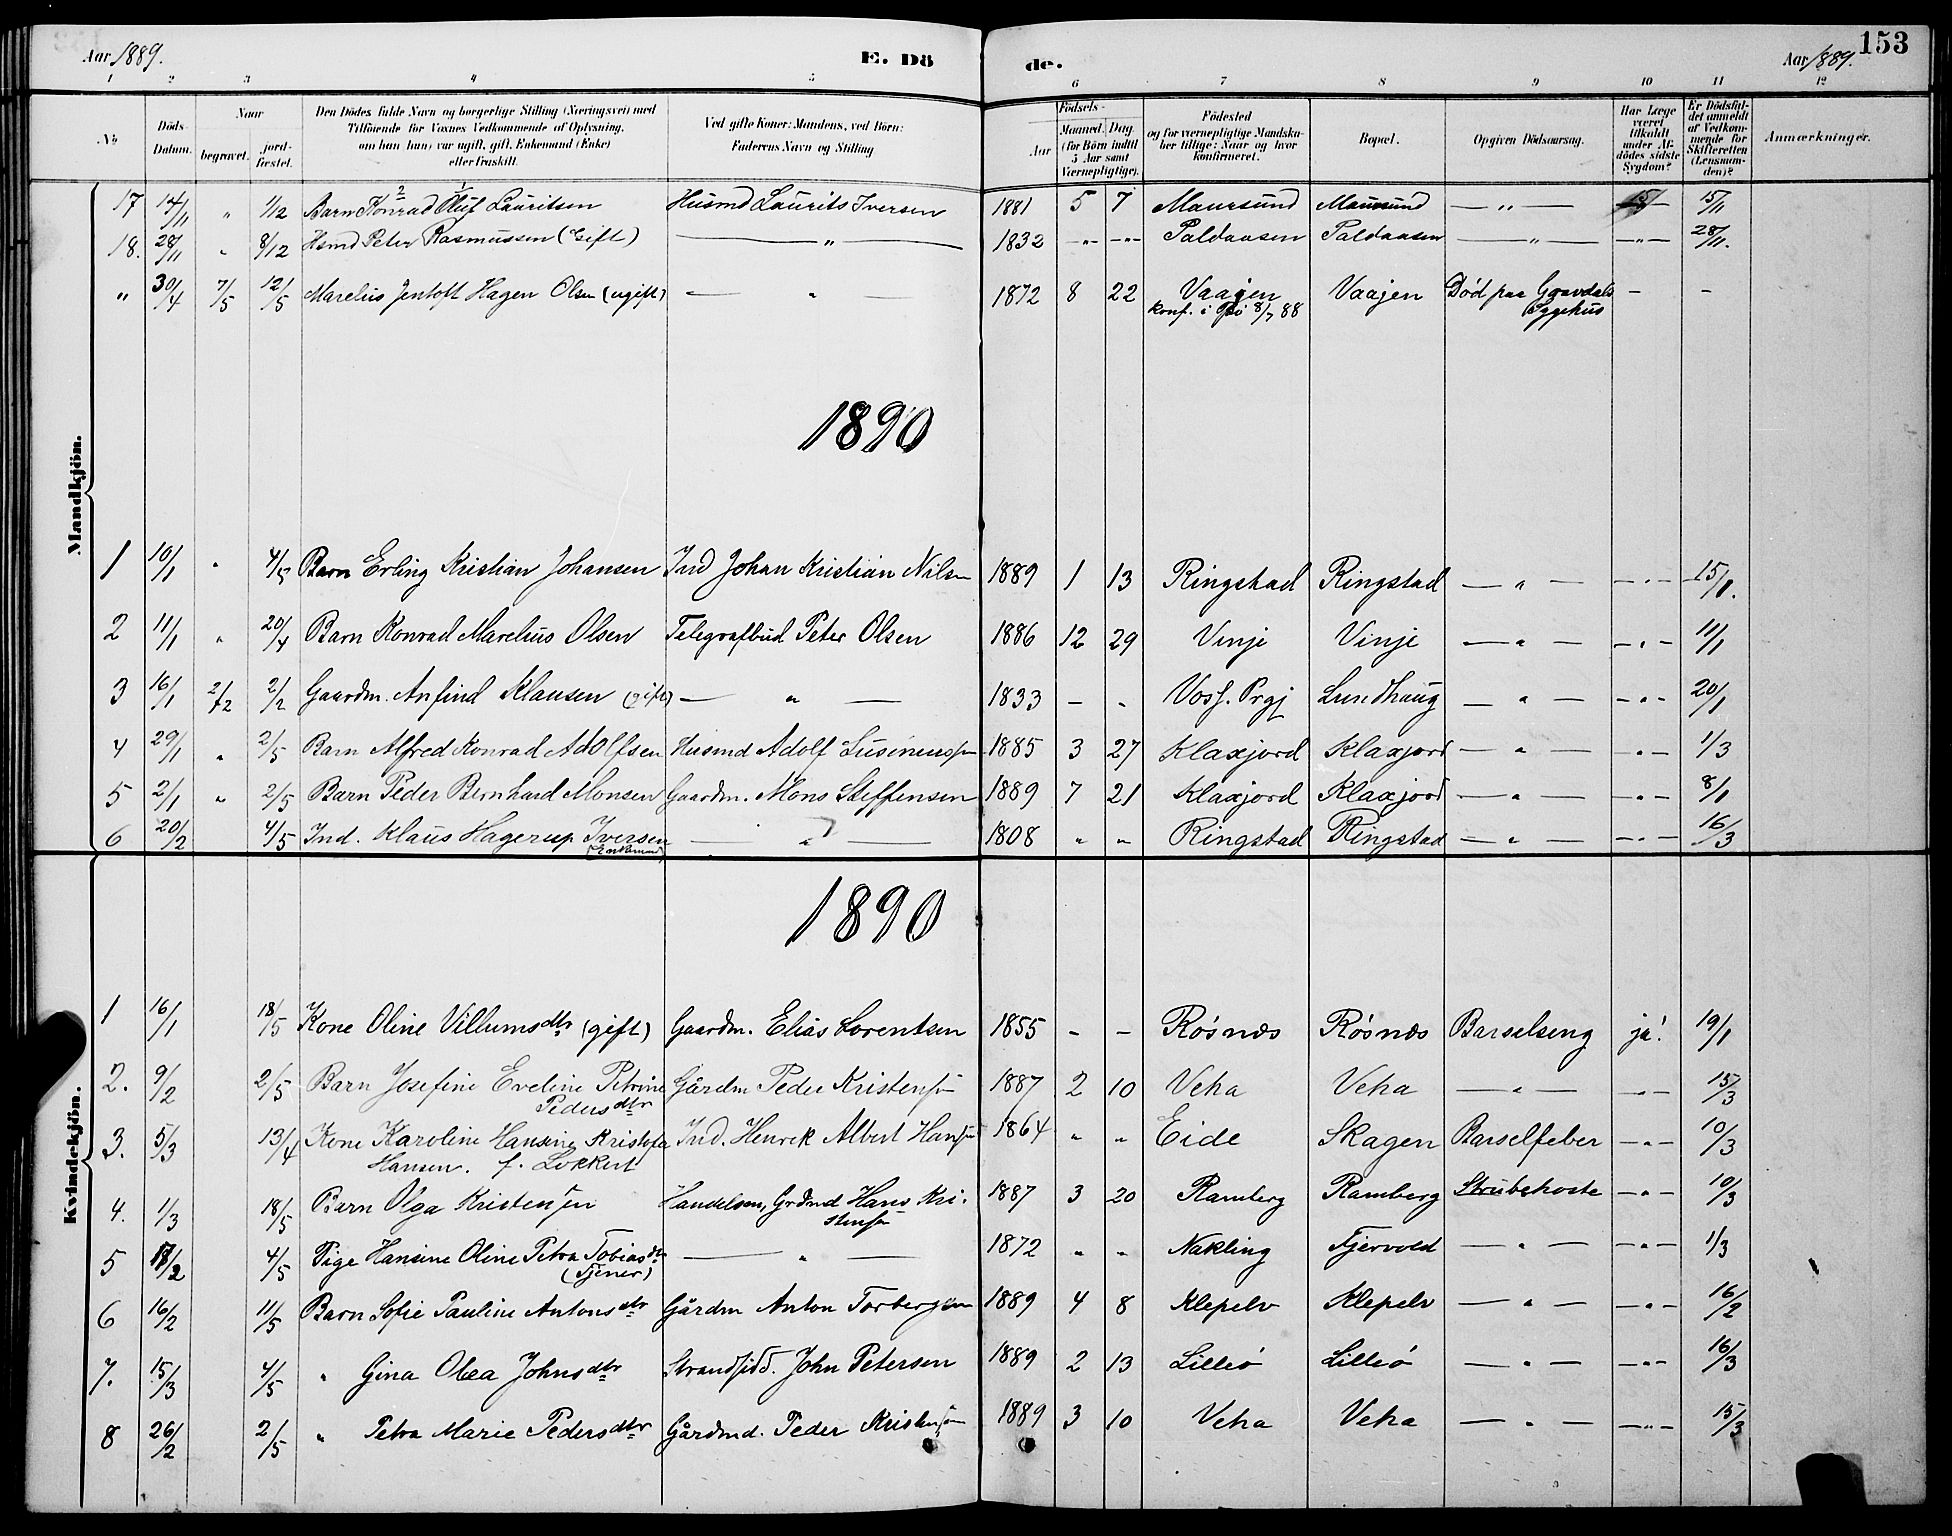 Aar 1889. E. Dö de. Aar 1889. 153
1 2 3 4 5 6 7 8 9 10 11 12
No Döds-Datum. Naar begravet. jord-fæstet. Den Dödes fulde Navn og borgerlige Stilling (Næringsvei) med Tilföiende for Voxnes Vedkommende af Oplysning, om han (hun) var ugift, gift, Enkemand (Enke) eller fraskilt. Ved gifte Koner: Mandens, ved Börn: Faderens Navn og Stilling Födsels- Aar Maaned. Dag (for Börn indtil 5 Aar samt Værnepligtige). Födested og for værnepligtige Mandska-ber tillige: Naar og hvor konfirmeret. Bopæl. Opgiven Dödsaarsag. Har Læge været tilkaldt under Af-dödes sidste Sygdom? Er Dödsfal-det anmeldt af Vedkom-mende for Skifteretten (Lensman-den)? Anmærkninger.
Mandkjön.
17 14/11 " 1/12 Barn Konrad Oluf Lauritsen Husmd Laurits Iversen 1881 5 7 Maursund Maursund — " — 15/11
18. 28/11 " 8/12 Hsmd Peter Rasmussen (Gift) — " — 1832 -"- -"- Paldaasen Paldaasen — " — -"- 28/11.
" 30/4 7/5 12/5 Marelius Jentoft Hagen Olsen (ugift) — " — 1872 8 22 Vaajen Vaajen Død paa Gravdals - -
konf. i Bø 8/7 88 Sygehus
1890
1 10/1 " 4/5 Barn Erling Kristian Johansen Ind Johan Kristian Nilsen 1889 1 13 Ringstad Ringstad — " — -"- 15/1.
2 11/1 " 20/4 Barn Konrad Marelius Olsen Telegrafbud Peter Olsen 1886 12 29 Vinje Vinje — " — -"- 11/1
3 16/1 2/2 2/2 Gaardm. Anfind Klausen (gift) — " — 1833 - " Voss. Prgj Lundhaug — " — -"- 20/1
4 29/1 " 2/5 Barn Alfred Konrad Adolfsen Husmd Adolf 1885 3 27 Klaxjord Klaxjord — " — -"- 1/3
5 2/1 " 2/5 Barn Peder Bernhard Monsen Gaardm. Mons Steffensen 1889 7 21 Klaxjord Klaxjord — " — -"- 8/1
6 20/2 4/5 Ind. Klaus Hagerup Iversen — " — 1808 " " Ringstad Ringstad — " — -"- 16/3
(Enkemand)
1890
Kvindekjön.
1 16/1 18/5 Kone Oline Villumsdtr (gift) Gaardm. Elias Lorentsen 1855 - - Røsnæs Røsnæs Barselseng ja! 19/1
2. 9/2 2/5 Barn Josefine Eveline Petrine Gårdm Peder Kristensen 1887 2 10 Veha Veha — " — -"- 15/3
Pedersdtr
3. 5/3 13/4 Kone Karoline Hansine Kristofa Ind. Henrik Albert Hansen 1864 " " Eide Skagen Barselfeber -"- 10/3
Hansen. f. Lokkert
4. 1/3 18/5 Barn Olga Kristensen Handelsm, Grdmd Hans Kri- 1887 3 20 Ramberg Ramberg Strubehoste -"- 10/3
stensen
5 17/2 4/5 Pige Hansine Oline Petra Tobiasdtr — " — 1872 " " Nakling Fjervold — " — -"- 1/3
(Tjener)
6 16/2 11/5 Barn Sofie Pauline Antonsdtr Gårdm Anton Torbergsen 1889 4 8 Klepelv Klepelv — " — -"- 16/2
7. 15/3 4/5 " Gina Olea Johnsdtr Strandsidd. John Petersen 1889 2 13 Lilleö Lilleö — " — -"- 16/3
8 26/2 2/5 " Petra Marie Pedersdtr Gårdmd. Peder Kristensen 1889 3 10 Veha Veha — " — -"- 15/3